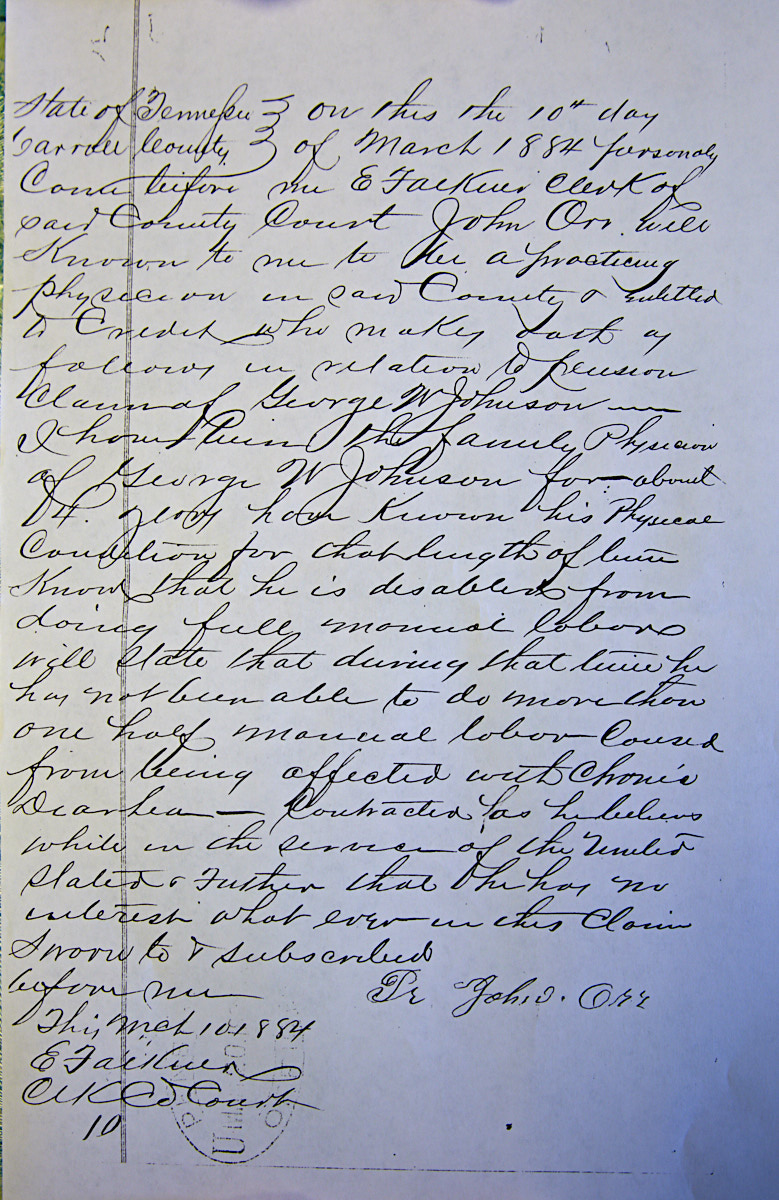 State of Tennessee } On this the 10th day
Carroll County } of March 1884 personaly
Come before me E Falkner Clerk of
said County Court John Orr well
Known to me to be a practicing
physician in said County & entitled
to Credit who makes oath as
follows in relation to pension
Claim of George W Johnson —
I have been the family Physician
of George W Johnson for about
14 years have Known his Physical
Condition for that length of time
Know that he is disabled from
doing full manual labor &
will state that during that time he
has not been able to do more than
one half manual labor Caused
from being affected with Chronic
Diarhea — Contracted as he believs
while in the service of the United
States & Further that he has no
interest what ever in this Claim
Sworn to & subscribed
before me Dr John. Orr
This Mch 10 1884
E Falkner
Clk Co Court
10